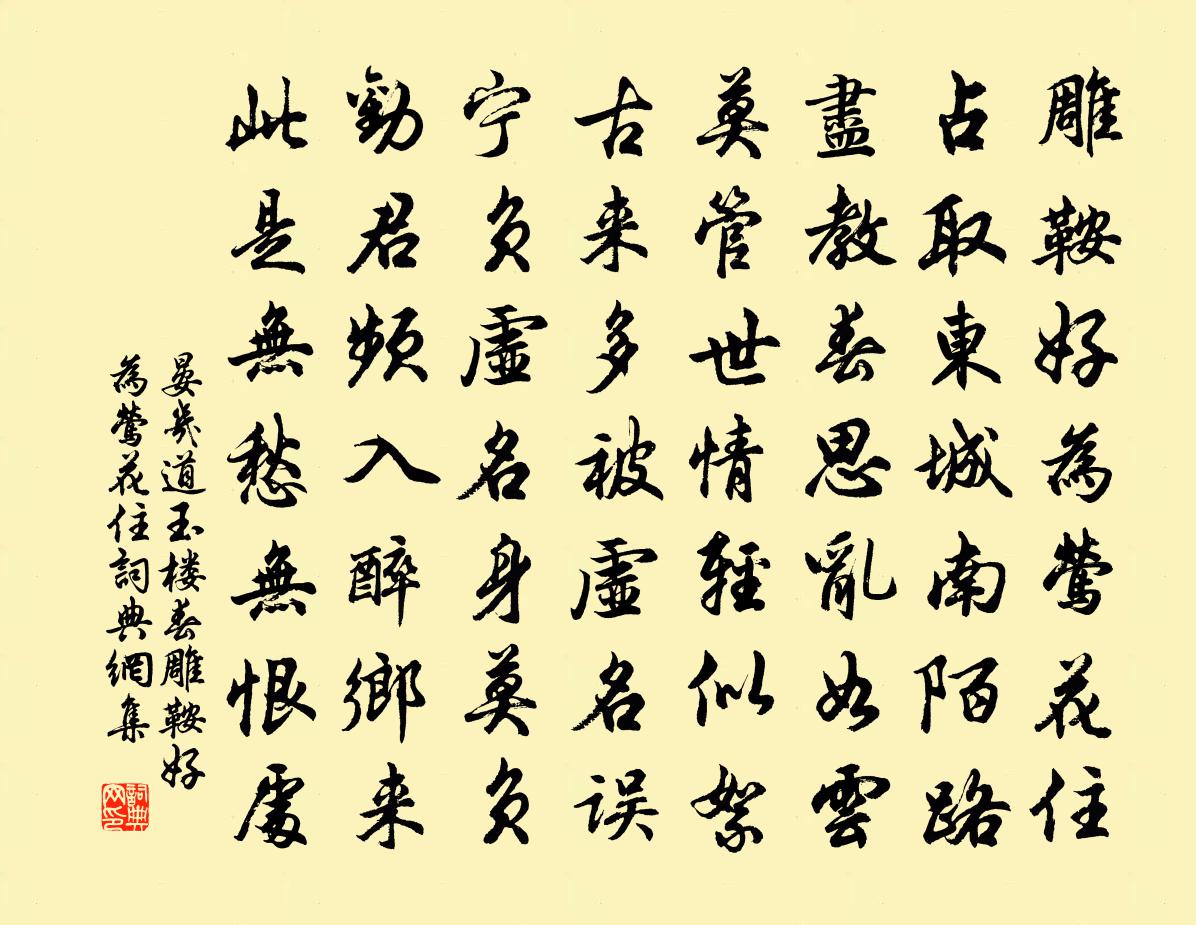 雕鞍好為鶯花住
占取東城南陌路
盡教春思亂如雲
莫管世情輕似絮
古来多被虛名误
宁負虛名身莫負
勸君頻入醉鄉来
此是無愁無恨處
晏幾道玉楼春雕鞍好
為鶯花住詞典網集
詞典
网印